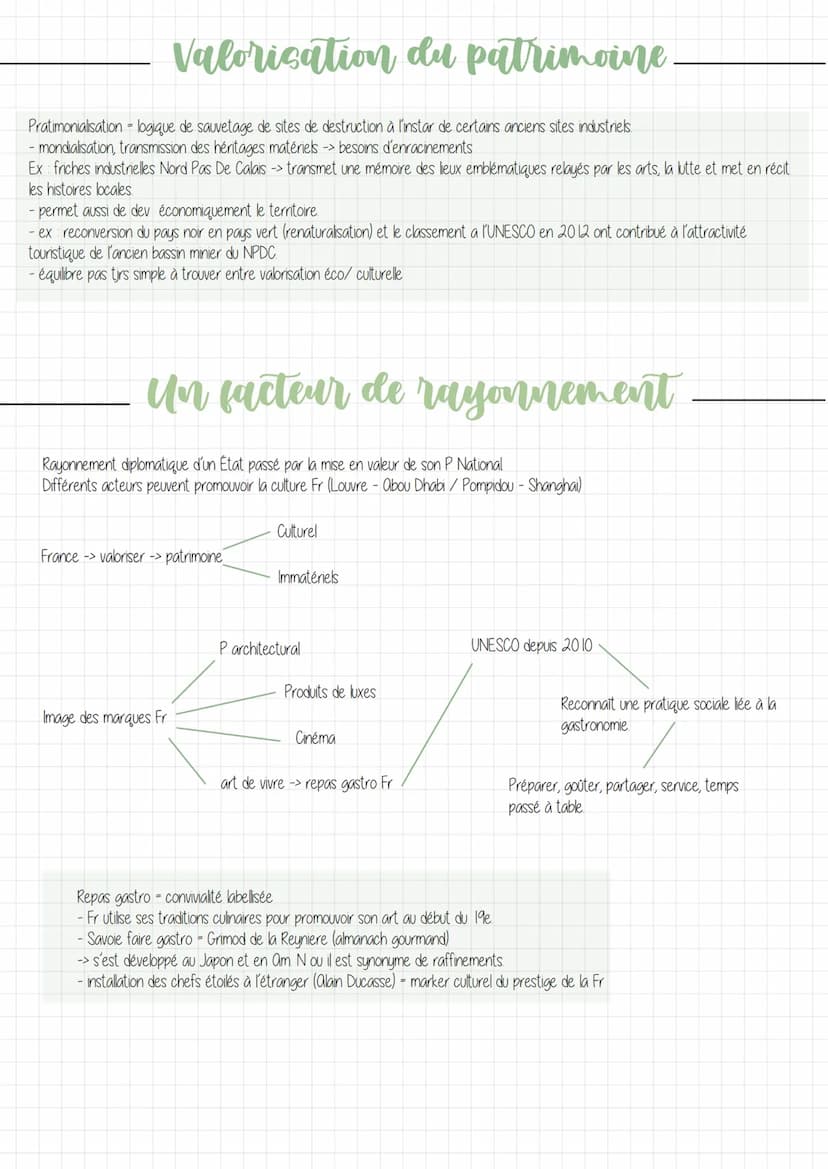 Valorisation du patrimoine
Pratimonialisation = logique de sauvetage de sites de destruction à l'instar de certains anciens sites industriels.
- mondialisation, transmission des héritages matériels -> besoins d'enracinements
Ex : friches industrielles Nord Pas De Calais -> transmet une mémoire des lieux emblématiques relayés par les arts, la lutte et met en récit
les histoires locales.
- permet aussi de dev économiquement le territoire.
- ex : reconversion du pays noir en pays vert (renaturalisation) et le classement a l'UNESCO en 2012 ont contribué à l'attractivité
touristique de l'ancien bassin minier du NPDC.
- équilibre pas tjrs simple à trouver entre valorisation éco/ culturelle
Un facteur de rayonnement
Rayonnement diplomatique d'un État passé par la mise en valeur de son P National
Différents acteurs peuvent promouvoir la culture Fr (Louvre - Abou Dhabi / Pompidou - Shanghai)
Culturel
France -> valoriser -> patrimoine
Immatériels
P architectural
UNESCO depuis 2010
Produits de luxes
Reconnaît une pratique sociale liée à la
gastronomie.
Image des marques Fr
Cinéma
art de vivre -> repas gastro Fr
Préparer, goûter, partager, service, temps
passé à table.
Repas gastro = convivialité labellisée
- Fr utilise ses traditions culinaires pour promouvoir son art au début du 19e.
- Savoie faire gastro = Grimod de la Reyniere (almanach gourmand)
-> s'est développé au Japon et en Am N ou il est synonyme de raffinements.
- installation des chefs étoilés à l'étranger (Alain Ducasse) = marker culturel du prestige de la Fr